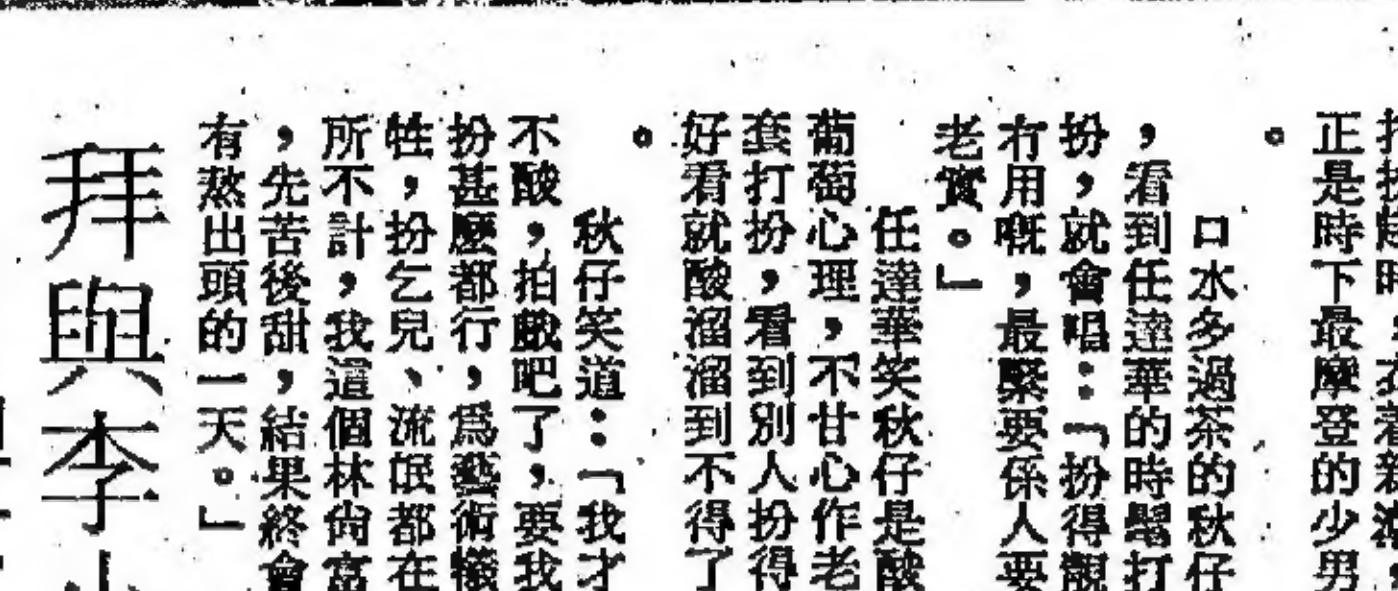 正是時下最摩登的少男
。
口水多過茶的秋仔
，看到任達華的時髦打
扮，就會唱：「扮得靚
冇用嘅，最緊要係人要
老實。」
任達華笑秋仔是酸
葡萄心理，不甘心作老
套打扮，看到別人扮得
好看就酸溜溜到不得了
。
秋仔笑道：「我才
不酸，拍戲吧了，要我
扮甚麼都行，爲藝術犧
牲，扮乞兒、流氓都在
所不計，我這個林尙富
，先苦後甜，結果終會
有熬出頭的一天。」
拜與李